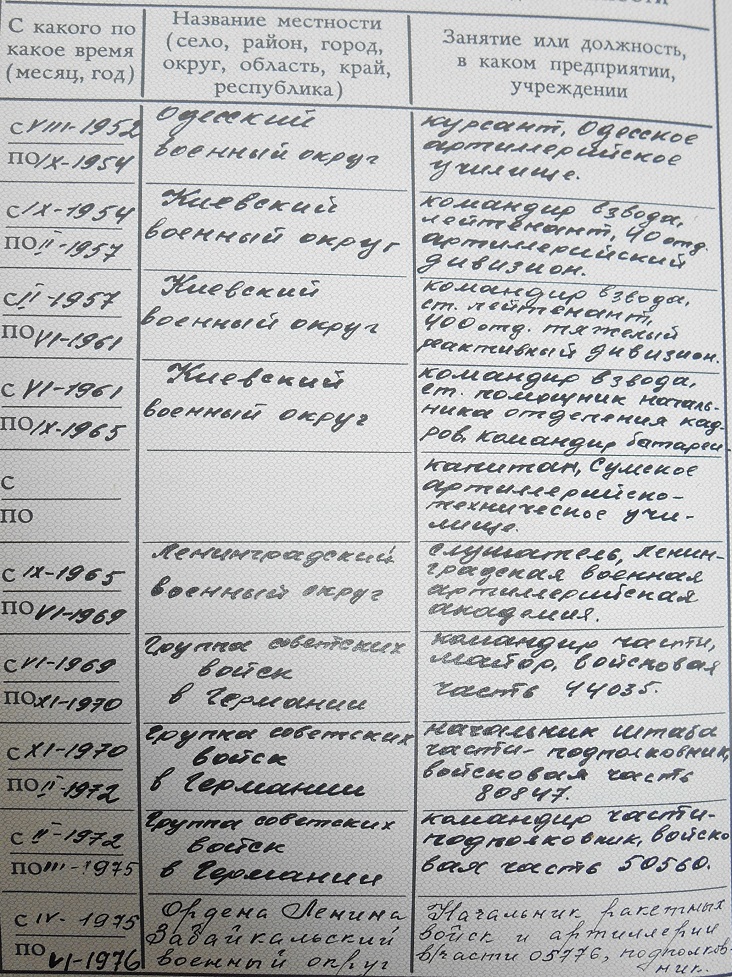 С какого по
какое время
(месяц, год)
Название местности
(село, район, город,
округ, область, край,
республика)
Занятие или должность,
в каком предприятии,
учреждении
С VIII-1952
ПО IX-1954
Одесский
военный округ
курсант, Одесское
артиллерийское
училище.
С IX-1954
ПО II-1957
Киевский
военный округ
командир взвода,
лейтенант, 40 отд.
артиллерийский
дивизион.
С II-1957
ПО VI-1961
Киевский
военный округ
командир взвода,
ст. лейтенант,
400 отд. тяжелый
реактивный дивизион.
С VI-1961
ПО IX-1965
Киевский
военный округ
командир взвода,
ст. помощник началь-
ника отделения кад-
ров, командир батареи-
С
ПО
капитан, Сумское
артиллерийско-
техническое учи-
лище.
С IX-1965
ПО VI-1969
Ленинградский
военный округ
слушатель, Ленин-
градская военная
артиллерийская
академия.
С VI-1969
ПО XI-1970
Группа советских
войск
в Германии
командир части,
майор, войсковая
часть 44035.
С XI-1970
ПО II-1972
Группа советских
войск
в Германии
начальник штаба
части- подполковник,
войсковая часть
80847.
С II-1972
ПО III-1975
Группа советских
войск
в Германии
командир части-
подполковник, войско
вая часть 50560.
С IV-1975
ПО VI-1976
Ордена Ленина
Забайкальский
военный округ
Начальник ракетных
войск и артиллерии
в/части 05776, подполков-
ник.